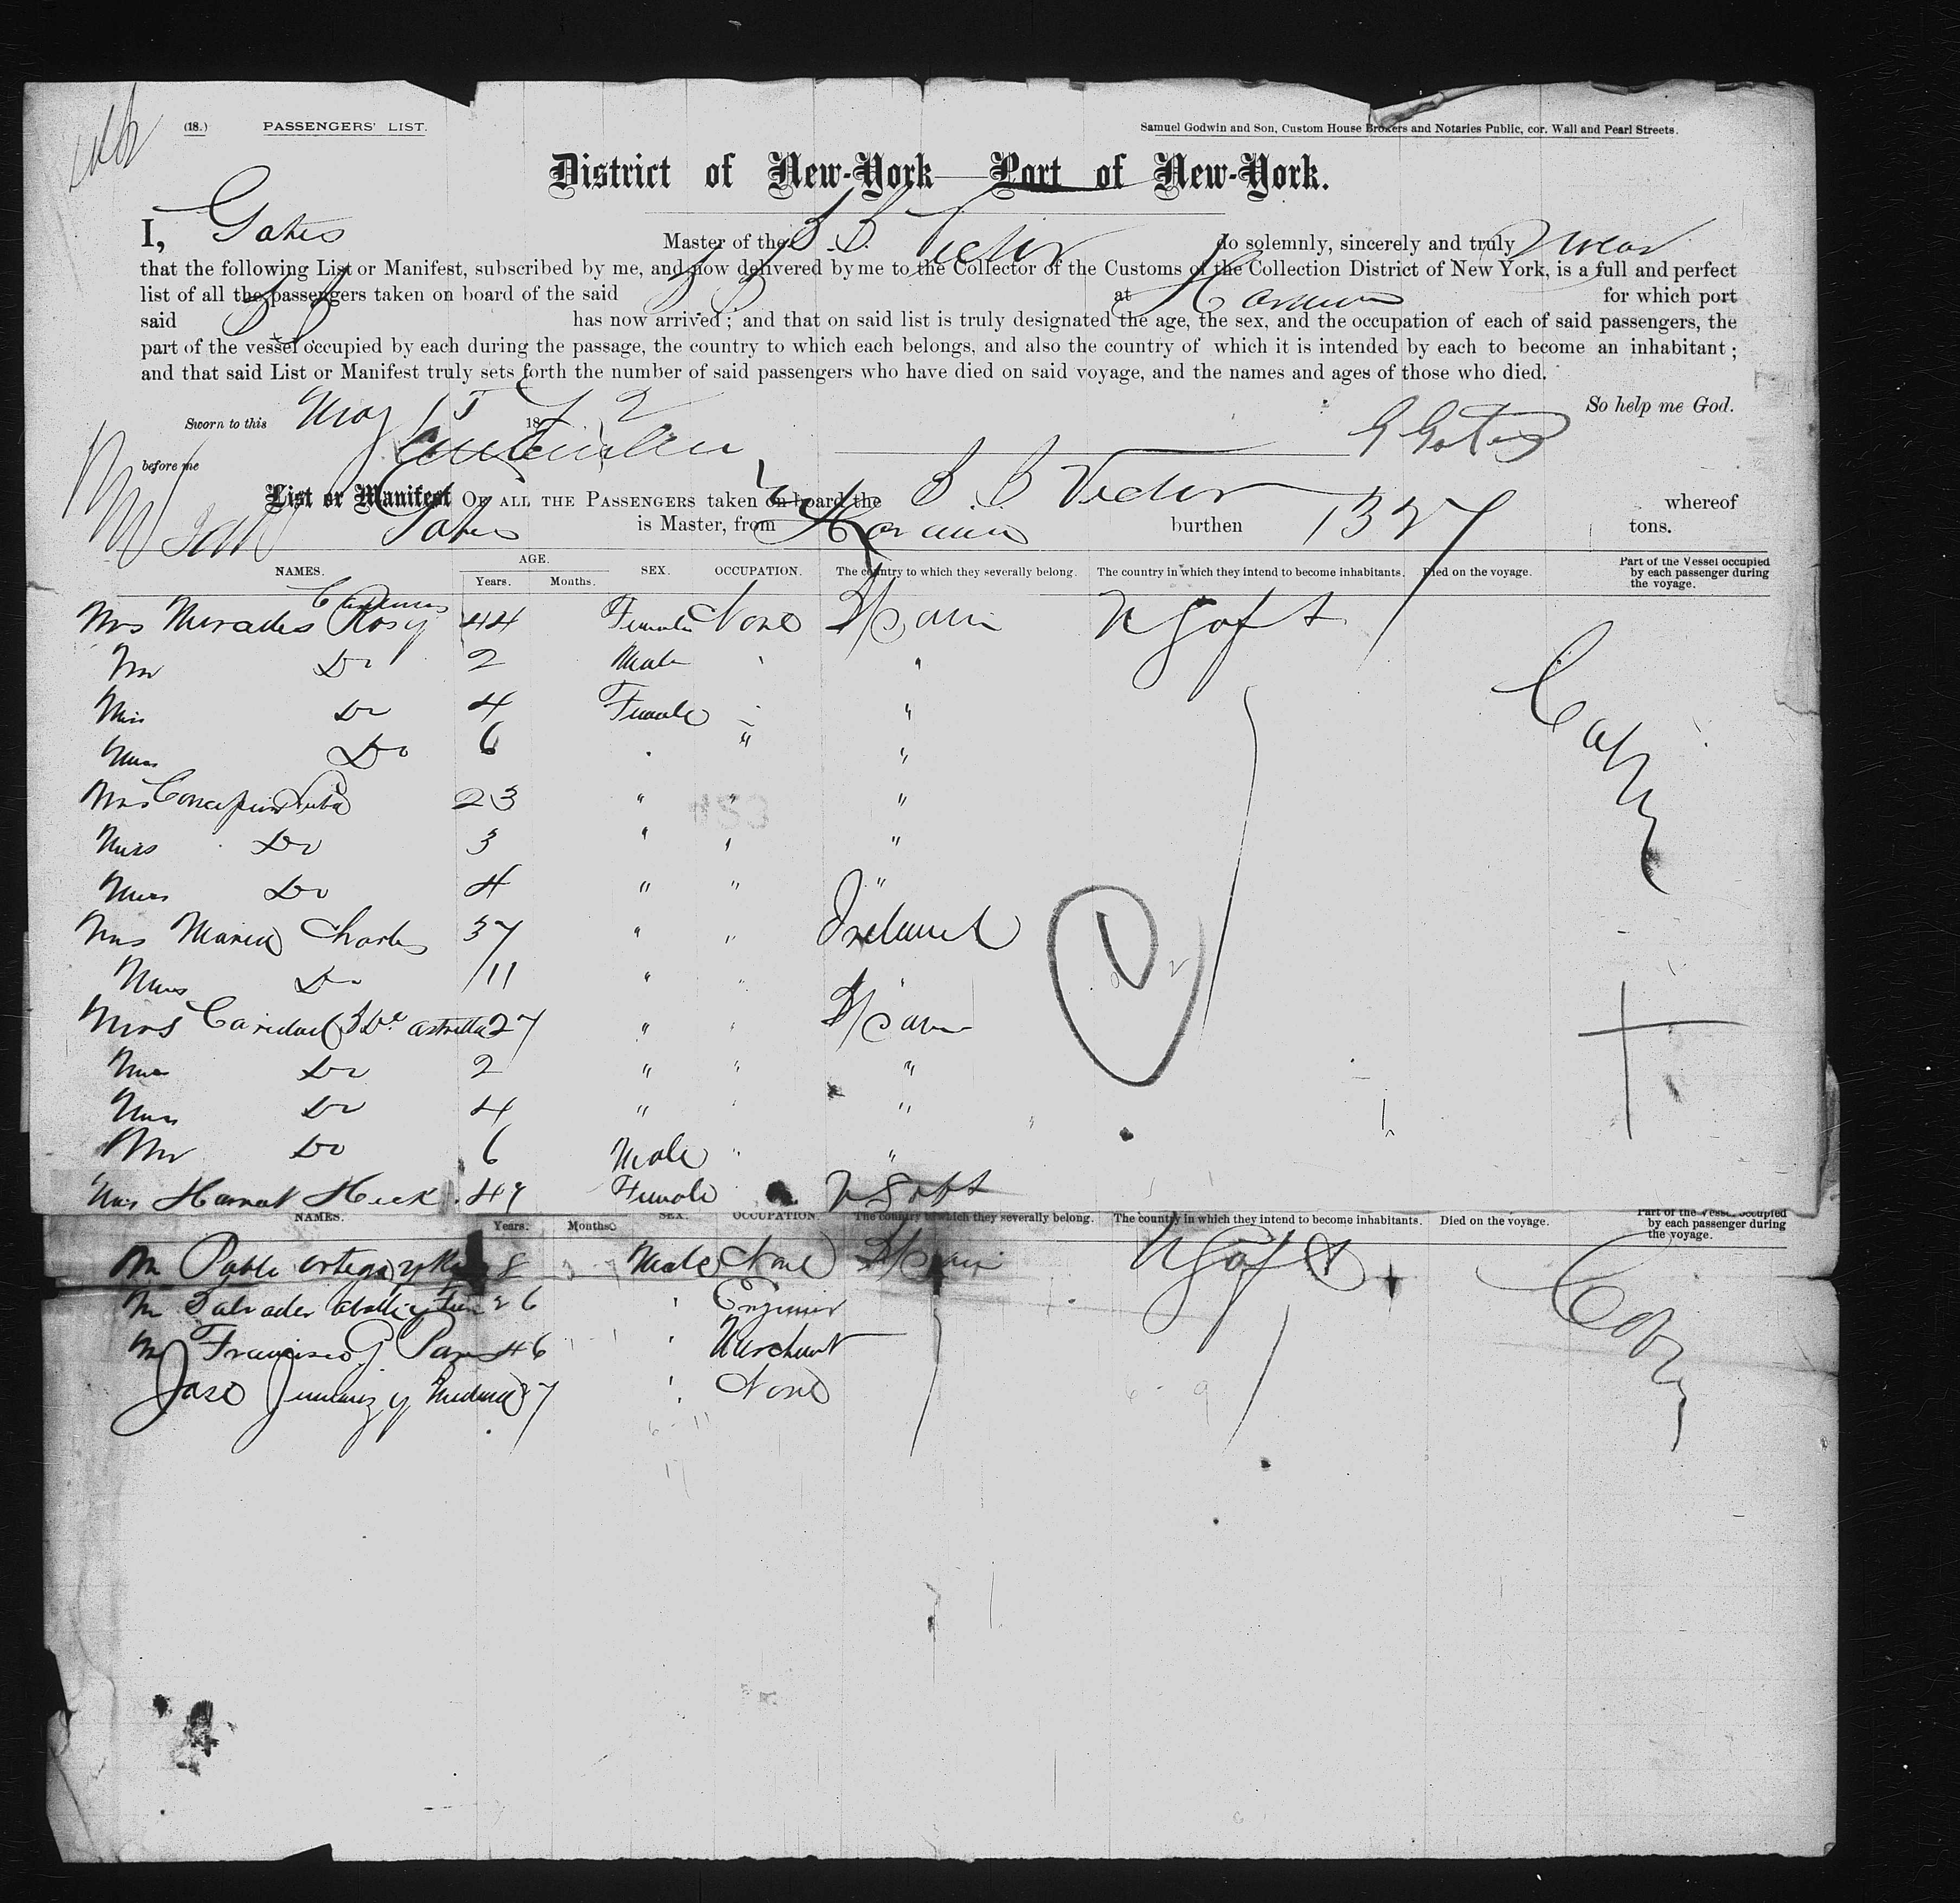 (18.) PASSENGERS' LIST. Samuel Godwin and Son, Custom House Brokers and Notaries Public, cor. Wall and Pearl Streets.
District of New-York—Port of New-York.
I, Gates Master of the S S do solemnly, sincerely and truly swear
that the following List or Manifest, subscribed by me, and now delivered by me to the Collector of the Customs of the Collection District of New York, is a full and perfect
list of all the passengers taken on board of the said S S at Havana for which port
said S S has now arrived; and that on said list is truly designated the age, the sex, and the occupation of each of said passengers, the
part of the vessel occupied by each during the passage, the country to which each belongs, and also the country of which it is intended by each to become an inhabitant;
and that said List or Manifest truly sets forth the number of said passengers who have died on said voyage, and the names and ages of those who died.
So help me God.
Sworn to this May 15 1872 G Gates
before me
List or Manifest OF ALL THE PASSENGERS taken on board the S S whereof
Gates is Master, from Havana burthen 1327 tons.
NAMES. AGE. Years. Months. SEX. OCCUPATION. The country to which they severally belong. The country in which they intend to become inhabitants. Died on the voyage. Part of the Vessel occupied by each passenger during the voyage.
Mrs 44 Female None Spain U S of A
Mr Do 2 Male " "
Miss Do 4 Female " " Cabin
Miss Do 6 " " "
Mrs 23 " " "
Miss Do 3 " " "
Miss Do 4 " " "
Mrs Maria Charles 37 " " Ireland
Miss Do 11 " " "
Mrs Caridad 27 " " Spain
Miss Do 2 " " "
Miss Do 4 " " "
Mr Do 6 Male " "
Mrs 49 Female U S of A
NAMES. Years. Months. SEX. OCCUPATION. The country to which they severally belong. The country in which they intend to become inhabitants. Died on the voyage. Part of the Vessel occupied by each passenger during the voyage.
Mr Pablo Ortega y 8 Male None Spain U S of A
Mr Salvador 26 " Engineer Cabin
Mr Francisco 46 " Merchant
Jose Jimenez y 37 " None